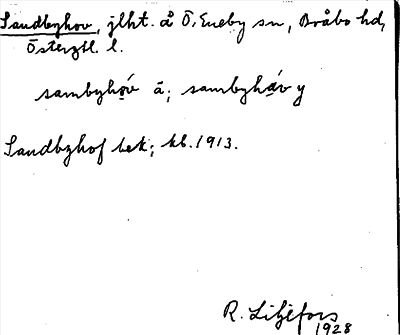 Sandbyhov, jlht. å Ö. Eneby sn, Bråbo hd,
Östergtl. l.
sambyhǫ́v ä; sambyhạ́v y
Sandbyhof bek; kb. 1913.
R. Liljefors
1928